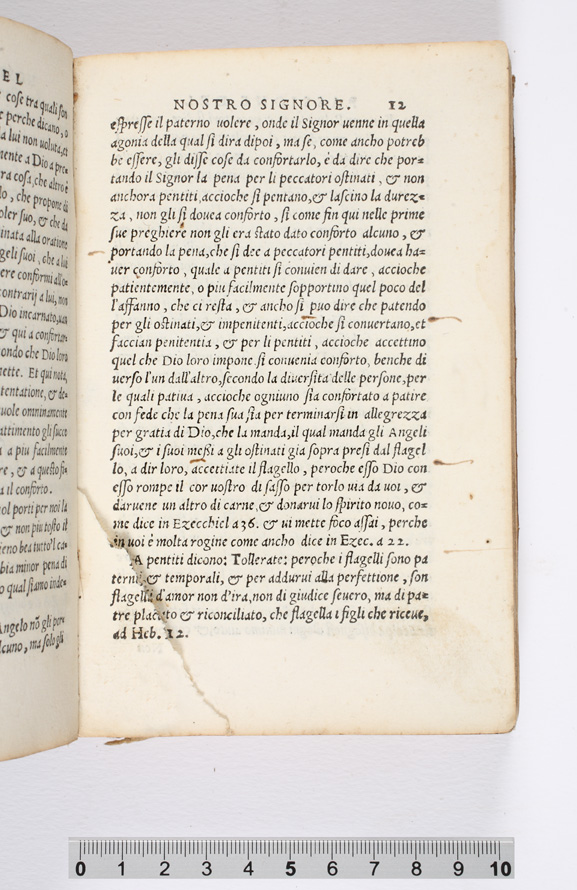 EL
cose tra quali son
e perche dicano, o
a lui non voluta, et
mente a Dio a pre-
ra cosa, che altro è
lo, che propone di
oler suo, & che da
inata alla oratione
geli suoi, che a lui
ere conformi all'o-
contrarij a lui, non
Dio incarnato, un
& qui a confortar-
ondo che Dio loro
mette. Et qui nota,
tentatione, & de-
uole omninamente
attimento gli succe
a piu facilmente
re, & a questo fi-
a il conforto.
ol porti per noi la
& non piu tosto il
ieno bea tutto'l ca-
bia minor pena di
o qual siamo inde-
Angelo nõ gli por-
lcuno, ma solo gli
NOSTRO SIGNORE. 12
espresse il paterno uolere, onde il Signor uenne in quella
agonia della qual si dira dipoi, ma se, come ancho potreb
be essere, gli disse cose da confortarlo, è da dire che por=
tando il Signor la pena per li peccatori ostinati, & non
anchora pentiti, accioche si pentano, & lascino la durez=
za, non gli si douea conforto, si come fin qui nelle prime
sue preghiere non gli era stato dato conforto alcuno, &
portando la pena, che si dee a peccatori pentiti, douea ha=
uer conforto, quale a pentiti si conuien di dare, accioche
patientemente, o piu facilmente sopportino quel poco del
l'affanno, che ci resta, & ancho si puo dire che patendo
per gli ostinati, & impenitenti, accioche si conuertano, et
faccian penitentia, & per li pentiti, accioche accettino
quel che Dio loro impone si conuenia conforto, benche di
uerso l'un dall'altro, secondo la diuersita delle persone, per
le quali patiua, accioche ogniuno sia confortato a patire
con fede che la pena sua sia per terminarsi in allegrezza
per gratia di Dio, che la manda, il qual manda gli Angeli
suoi, & i suoi messi a gli ostinati gia sopra presi dal flagel
lo, a dir loro, accettiate il flagello, peroche esso Dio con
esso rompe il cor uostro di sasso per torlo uia da uoi, &
daruene un altro di carne, & donarui lo spirito nouo, co=
me dice in Ezecchiel a 36. & ui mette foco assai, perche
in uoi è molta rogine come ancho dice in Ezec. a 22.
A pentiti dicono: Tollerate: peroche i flagelli sono pa
terni, & temporali, & per addurui alla perfettione, son
flagelli d'amor non d'ira, non di giudice seuero, ma di pa=
tre placato & riconciliato, che flagella i figli che riceue,
ad Heb. 12.